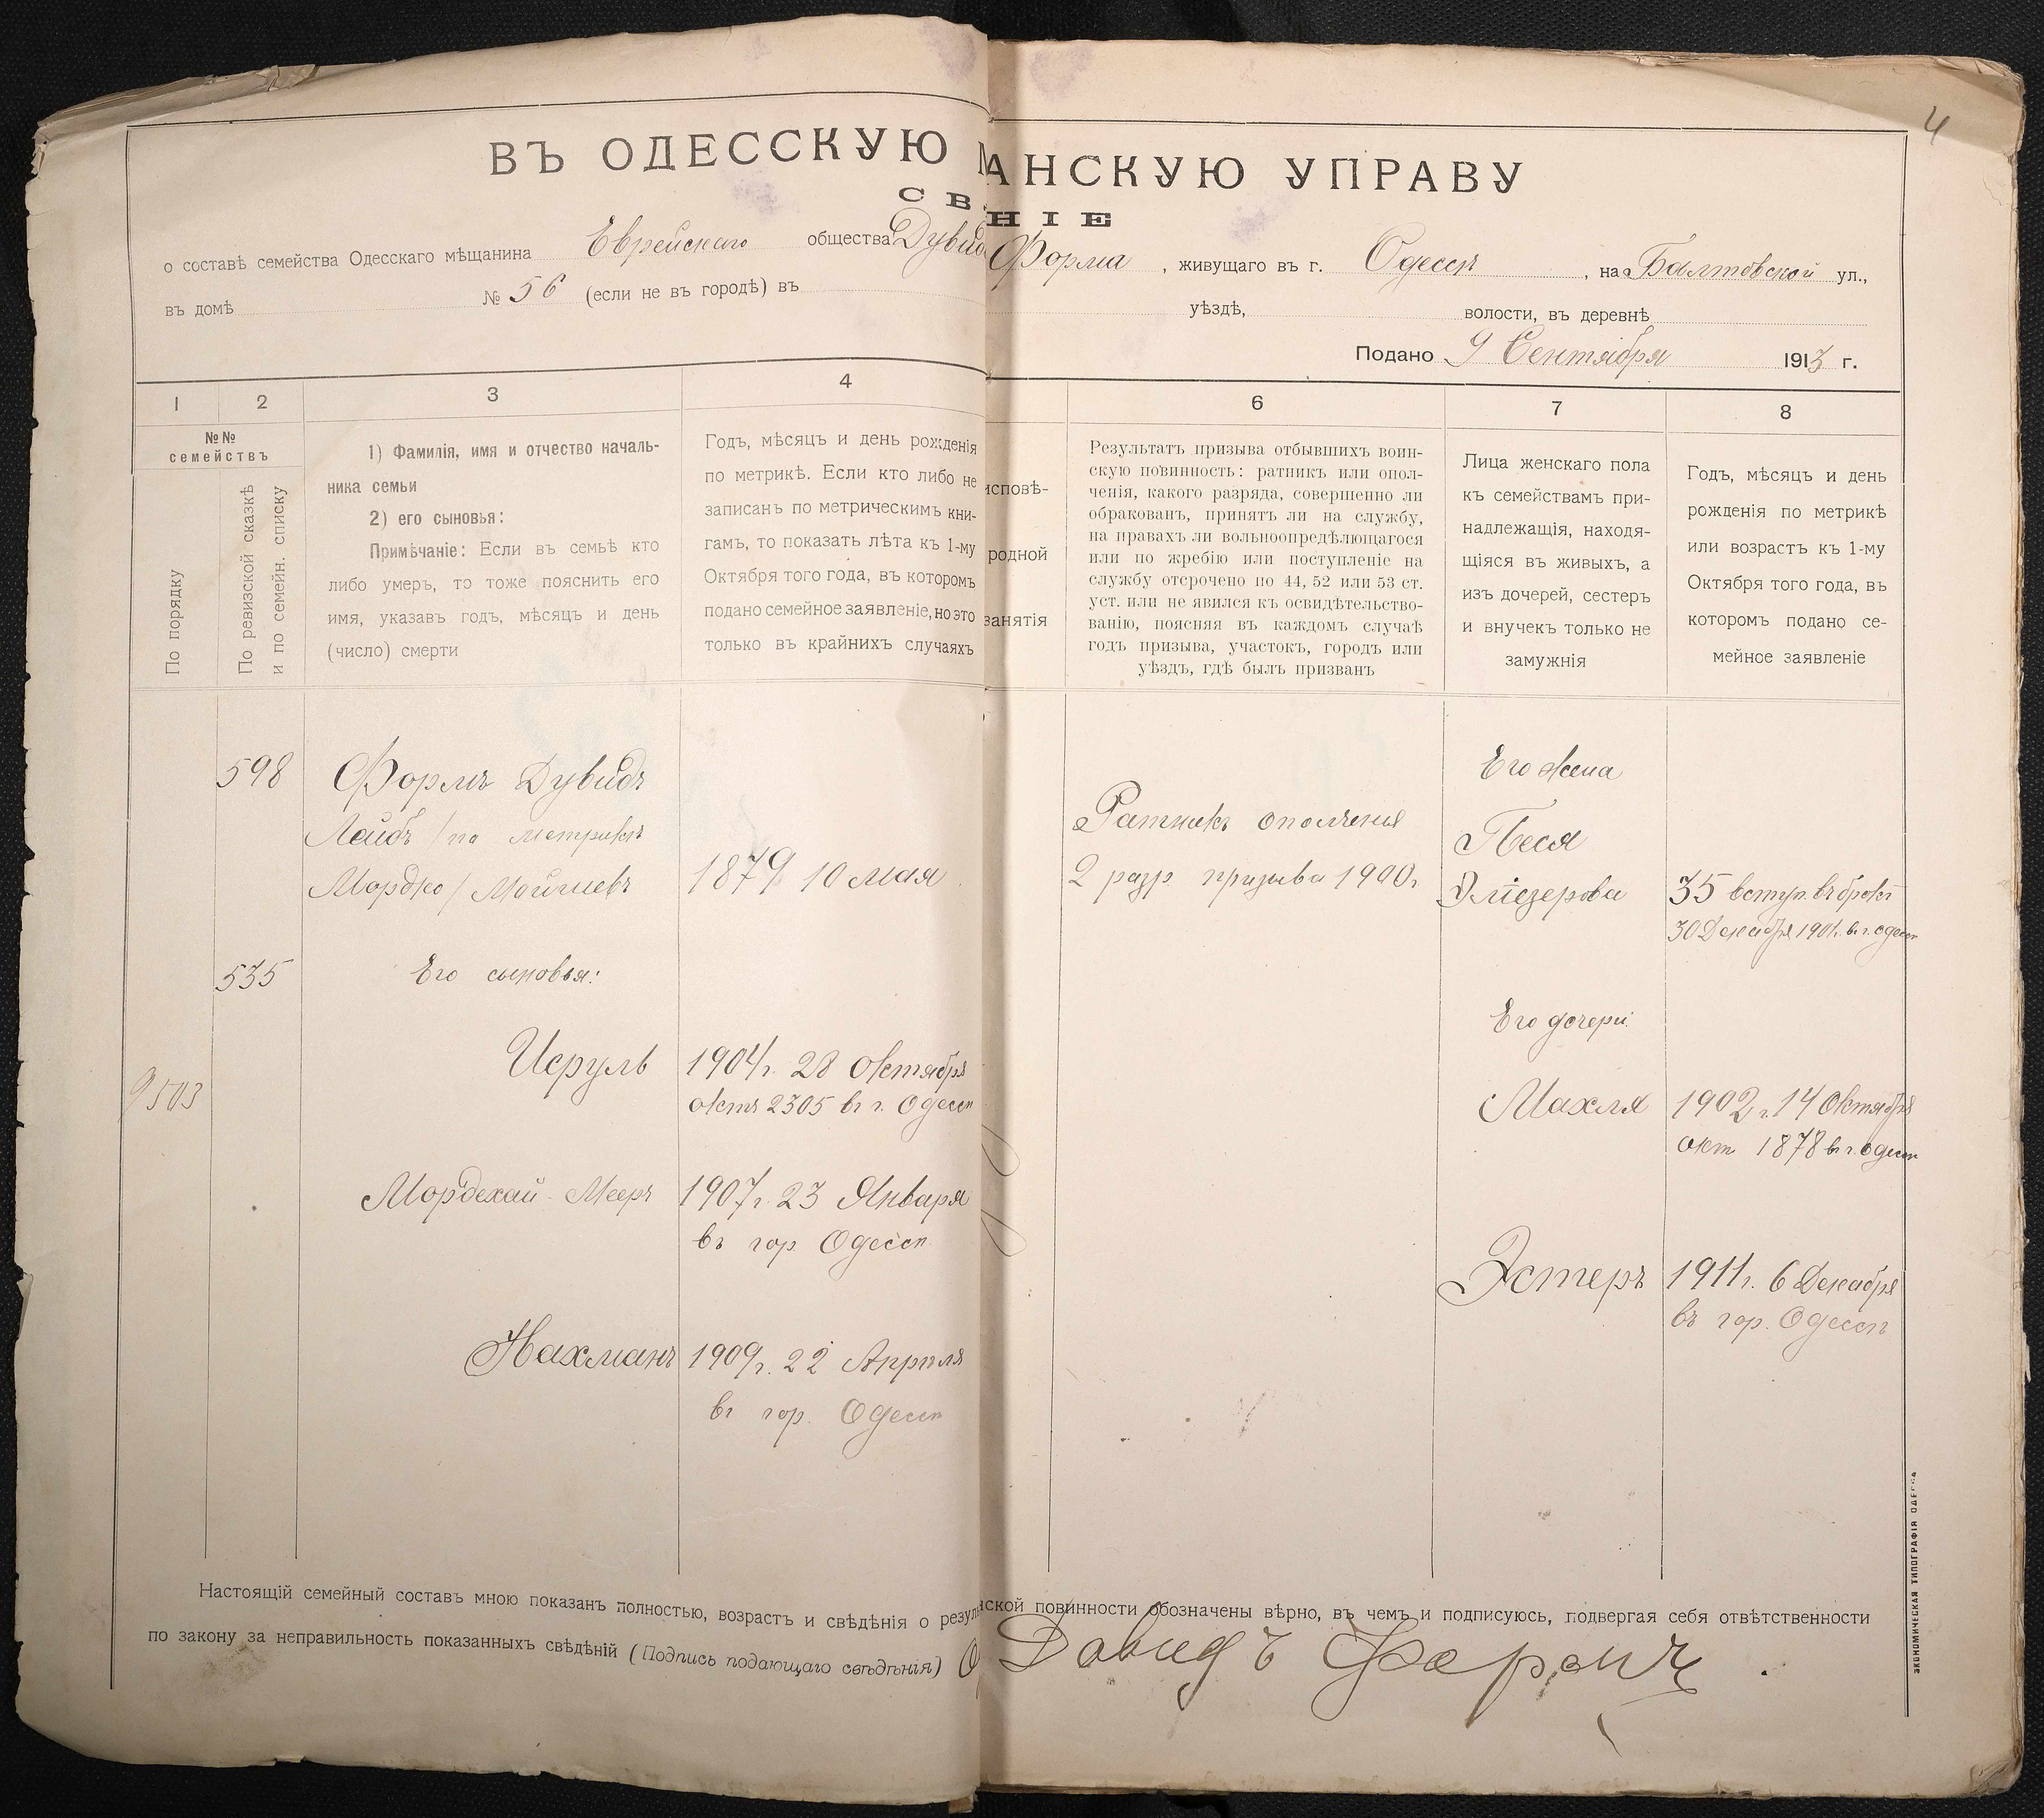 4
ВЪ ОДЕССКУЮ М
АНСКУЮ УПРАВУ
СВ
НІЕ
о составѣ семейства Одесскаго мѣщанина Еврейскаго общества Дувид
Форма, живущаго въ г. Одессѣ, на Балтовской ул.,
въ домѣ № 56 (если не въ городѣ) въ
уѣздѣ, волости, въ деревнѣ
Подано 9 Сентября 1913 г.
1 2 3 4
№№ семействъ
По порядку
По ревизской сказкѣ
и по семейн. списку
1) Фамилія, имя и отчество началь-
ника семьи
2) его сыновья:
Примѣчаніе: Если въ семьѣ кто
либо умеръ, то тоже пояснить его
имя, указавъ годъ, мѣсяцъ и день
(число) смерти
Годъ, мѣсяцъ и день рожденія
по метрикѣ. Если кто либо не
записанъ по метрическимъ кни-
гамъ, то показать лѣта къ 1-му
Октября того года, въ которомъ
подано семейное заявленіе, но это
только въ крайнихъ случаяхъ
исповѣ-
родной
занятія
6 7 8
Результатъ призыва отбывшихъ воин-
скую повинность: ратникъ или опол-
ченія, какого разряда, совершенно ли
обракованъ, принятъ ли на службу,
на правахъ ли вольноопредѣлющагося
или по жребію или поступленіе на
службу отсрочено по 44, 52 или 53 ст.
уст. или не явился къ освидѣтельство-
ванію, поясняя въ каждомъ случаѣ
годъ призыва, участокъ, городъ или
уѣздъ, гдѣ былъ призванъ
Лица женскаго пола
къ семействамъ при-
надлежащія, находя-
щіяся въ живыхъ, а
изъ дочерей, сестеръ
и внучекъ только не
замужнія
Годъ, мѣсяцъ и день
рожденія по метрикѣ
или возрастъ къ 1-му
Октября того года, въ
которомъ подано се-
мейное заявленіе
598 Формъ Дувидъ
Лейбъ /по метрикѣ
Мордко/ Мойшевъ 1879 10 мая
535 Его сыновья:
Исруль 1904 г. 28 Октября
9503 актъ 2305 въ г. Одессѣ
Мордехай-Мееръ 1907 г. 23 Января
въ гор. Одессѣ
Нахманъ 1909 г. 22 Апрѣля
въ гор. Одессѣ
Ратникъ ополченія
2 разр. призыва 1900 г.
Его жена
Песя
Эліезерова 35 вступ. въ бракъ
30 Декабря 1901 г. въ г. Одессѣ
Его дочери:
Махля 1902 г. 14 Октября
акт 1878 въ г. Одессѣ
Эстеръ 1911 г. 6 Декабря
въ гор. Одессѣ
Настоящій семейный составъ мною показанъ полностью, возрастъ и свѣдѣнія о резул
нской повинности обозначены вѣрно, въ чемъ и подписуюсь, подвергая себя отвѣтственности
по закону за неправильность показанныхъ свѣдѣній (Подпись подающаго свѣдѣнія)
Давидъ Формъ.
ЭКОНОМИЧЕСКАЯ ТИПОГРАФІЯ ОДЕССА